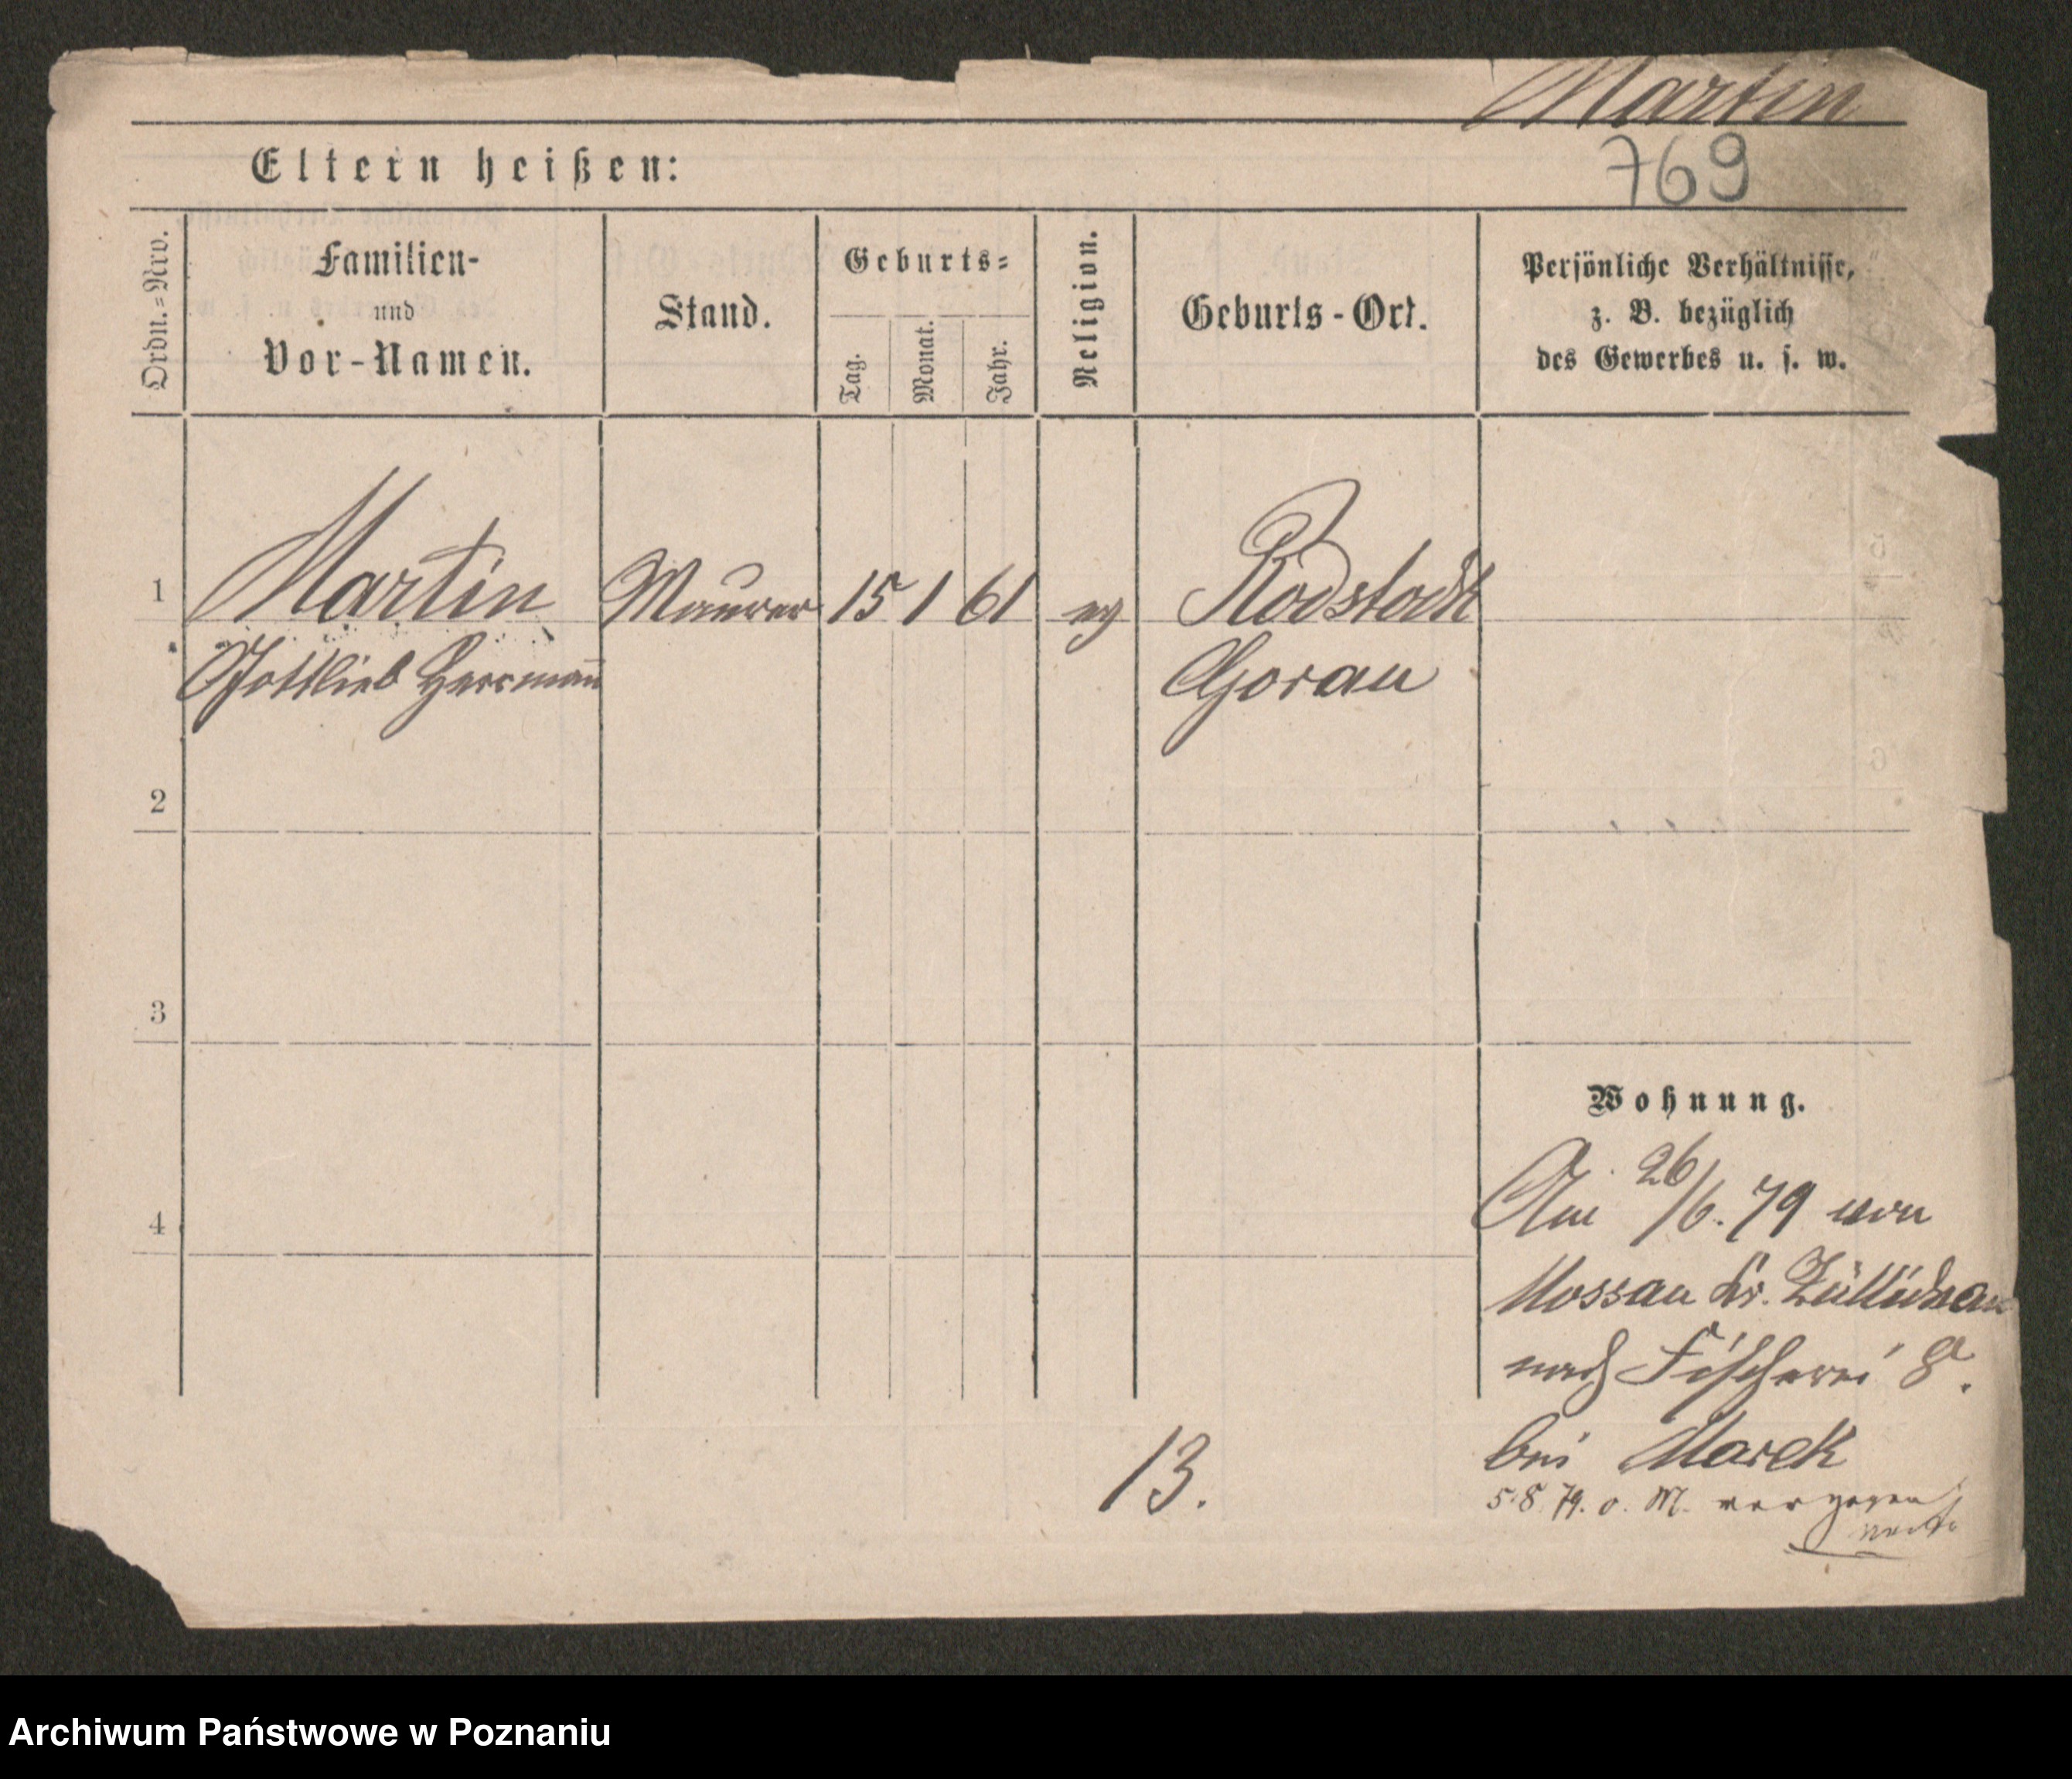 Martin
769
Eltern heißen:
Ordn.=Nro.
Familien-
und
Vor-Namen.
Stand.
Geburts=
Tag.
Monat.
Jahr.
Religion.
Geburts-Ort.
Persönliche Verhältnisse,
z. B. bezüglich
des Gewerbes u. s. w.
1 Martin Maurer 15 1 61 ev Rodstock
Gottlieb Herrmañ Gorau
2
3
4
Wohnung.
Am 26/6. 79 von
Mossau Kr. Züllichau
nach Fischerei 8.
bei Marek
5.8.79. o. M. verzogen
13.
Archiwum Państwowe w Poznaniu